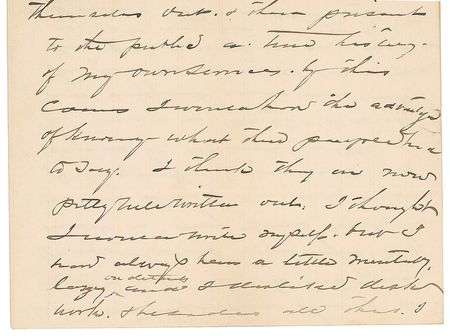 themselves out. & then present
to the public a true history.
of my own services. by this
course I would have the advantage
of knowing what these people had
to say. I think they are now
pretty well written out. I thought
I would write myself. but I
have always been a little mentally
lazy, on details and I disliked desk
work. & besides all this. I